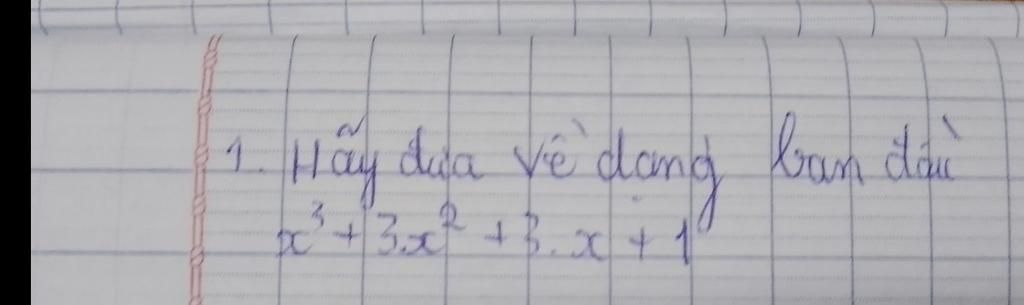 1. Hãy đưa về dạng ban đầu
x³ + 3.x² + 3.x + 1